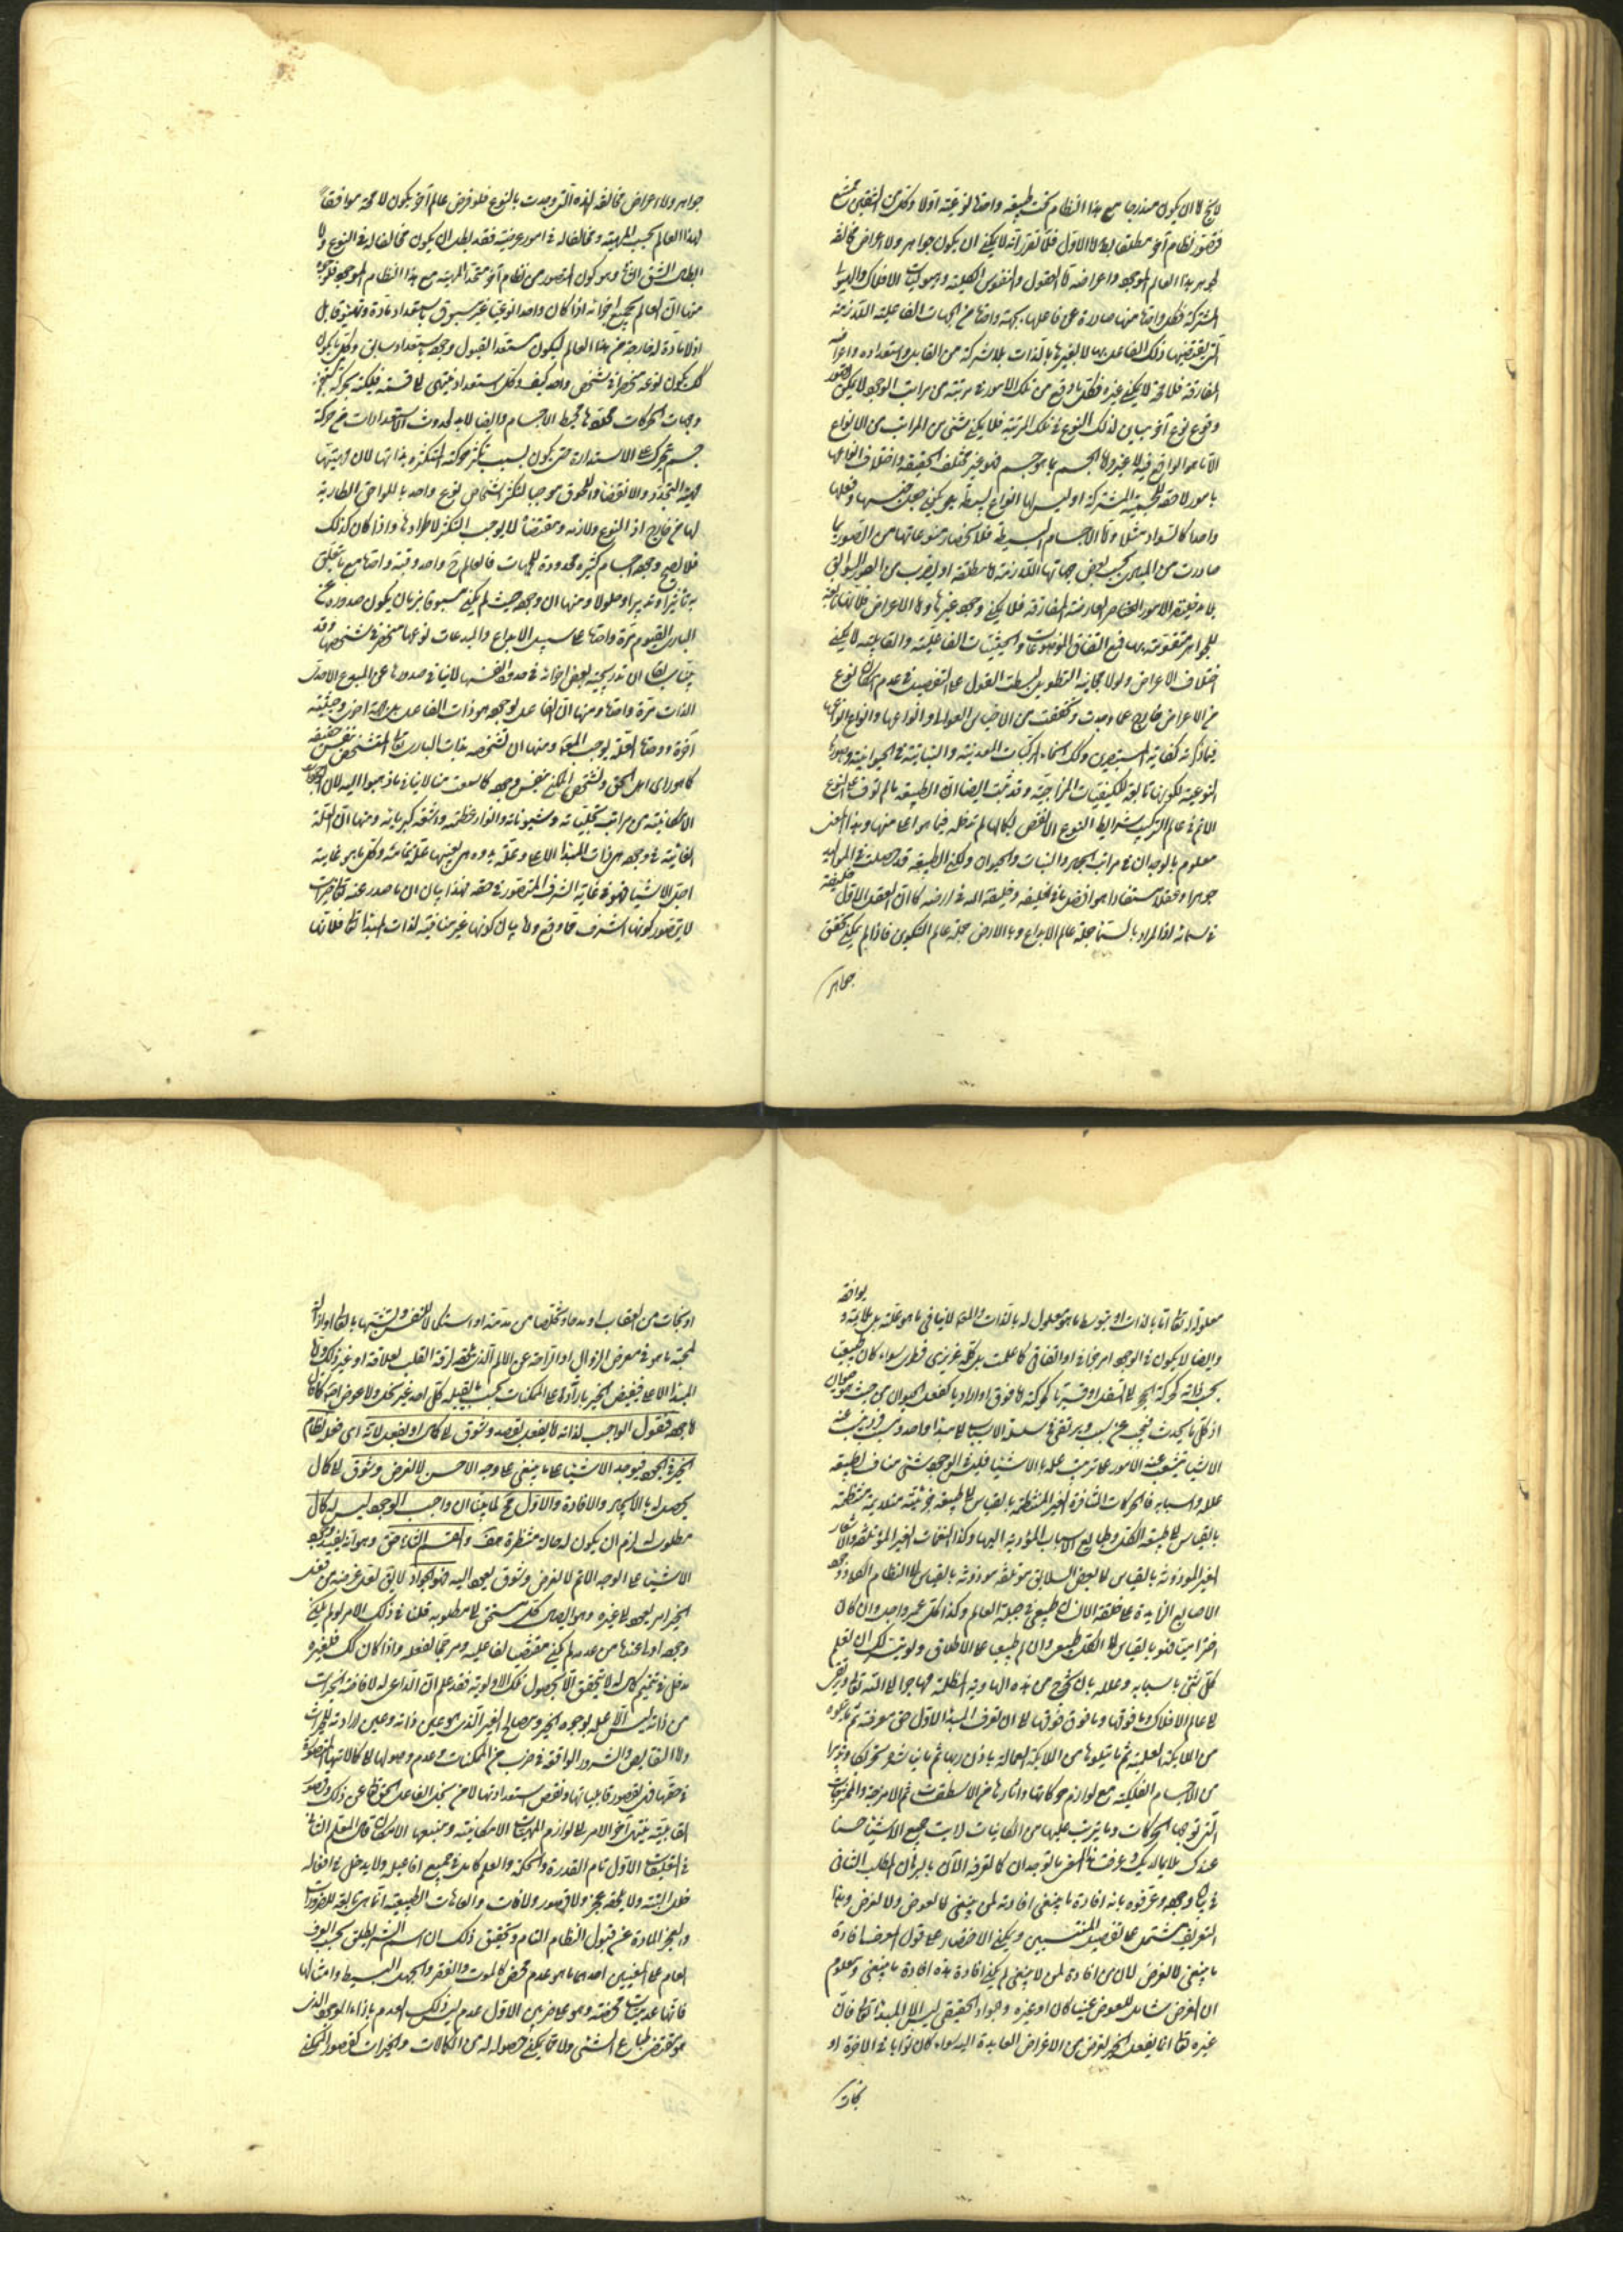 لا يخ اما ان يكون مندرجا مع هذا النظام تحت طبيعة واحدة نوعية او لا وكل من الشقين ممتنع
فتصور نظام آخر مطلقا باطل اما الاول فلما تقرر انه لا يمكن ان يكون جواهر ولا اعراض مخالفة
لجواهر هذا العالم الموجود واعراضه اما العقول والنفوس الكلية وهيوليات الافلاك والهيولى
المشتركة فكل واحدة منها صادرة عن فاعلها بجهة واحدة من الجهات الفاعلية اللازمة
التي يقتضيها ذلك الفاعل بها لا بغيرها بالذات بلا شركة من القابل واستعداده واعراضه
المفارقة فلا محة لا يمكن غيره فكل ما وقع من تلك الامور في مرتبة من مراتب الوجود لا يمكن تصور
وقوع نوع آخر مباين لذلك النوع في تلك المرتبة فلا يمكن شئ من المراتب من الانواع
الا ما هو الواقع فيه لا غير واما الجسم بما هو جسم فهو غير مختلف الحقيقة واختلاف انواعها
بامور لاحقة للجسمية المشتركة او ليس لها انواع بسيطة يمكن جعل جنسها وفصلها
واحدا كالسواد مثلا واما الاجسام البسيطة فلانحصار منوعاتها من الصور بما
صادرت من المبادى بحسب بعض جهاتها اللازمة
للجواهر متقومة بها فمع اتفاق الموضوعات والحيثيات الفاعلية والقابلية لا يمكن
اختلاف الاعراض ولولا مخافة التطويل لبسطت القول على التفصيل في عدم امكان نوع
من الاعراض خارج عما وجدت وتحققت من الاجناس العوالي وانواعها وانواع انواعها
فيما ذكرناه كفاية للمستبصرين وكك اسماء المركبات المعدنية والنباتية والحيوانية وصورها
النوعية لكونها تابعة للكيفيات المزاجية وقد ثبت ايضا ان الطبيعة ما لم توف على النوع
الاتم في عالم التركيب شرايط النوع الانقص بكمالها لم تدخله فيما هو اعلى منها وهذا المعنى
معلوم بالوجدان في مراتب الجماد والنبات والحيوان ولكن الطبيعة قد حصلت في المواليد
جوهرا وعقلا مستفادا هو افضل ما في الخليقة وخليفة الله في ارضه كما ان العقل الاول خليفته
في سمائه اذ المراد بالسماء جملة عالم الابداع وبالارض جملة عالم التكوين فاذا لم يمكن تحقق
جواهر
جواهر ولا اعراض مخالفة لهذه التي وجدت بالنوع فلو فرض عالم آخر يكون لا محة موافقا
لهذا العالم بحسب المهية ومخالفا له في امور عرضية فقد بطل ان يكون مخالفا له في النوع واما
ابطال الشق الثاني وهو كون المتصور من نظام آخر متحد المهية مع هذا النظام الموجود فلوجوه
منها ان العالم بجميع اجزائه اذا كان واحدا نوعيا غير مسبوق باستعداد مادة وتهيؤ قابل
اذ لا مادة له خارجة من هذا العالم ليكون مستعد القبول وجوده باستعداد سابق وكل ما يكون
كك يكون نوعه منحصرا في شخص واحد كيف وكل استعداد ينتهى الى قسمة فلكية بحركة
وجهات الحركات محققها محيط الاجسام وايضا لا بد لحدوث الاستعدادات من حركة
جسم متحرك على الاستدارة حتى يكون بسبب تكثر حركته المتكثرة بذاتها لان مهيتها
مهية التجدد والانقضاء واللحوق موجبا لتكثر اشخاص نوع واحد باللواحق الطارية
لها من خارج اذ النوع ولازمه ومقتضاه لا يوجب التكثر لاطرادها واذا كان كذلك
فلا يصح وجود اجسام كثيرة محدودة للجهات فالعالم ح واحد وقبته واحدة مع ما يتعلق
به تاثيرا وتدبيرا وحلولا ومنها ان وجوده حيث لم يكن مسبوقا بزمان يكون صدوره عن
البارى القيوم مرة واحدة على سبيل الابداع والمبدعات نوعها منحصر في شخصها وقد
بينا سابقا ان تدريجية بعض اجزائه في حدود انفسها لا ينافي صدورها عن المبدع الاحدى
الذات مرة واحدة ومنها ان الفاعل لوجوده هو ذات الفاعل بلا جهة اخرى وحيثية
آخرة ووحدة العلة يوجب المعلول ومنها ان تشخصه بذات البارى تعالى المتشخص بنفس حقيقته
كما هو راى اهل الحق وتشخص الممكن بنفس وجوده كما سمعت منا لا ينافي ما ذهبوا اليه لان الوجودات
الامكانية من مراتب تجلياته وشيوناته وانوار عظمته واشعة كبريائه ومنها ان العلة
الغائية في وجوده هي ذات المبدا الاعلى وعلة بدوه هي بعينها علة تمامه وكل ما هو غايته
اجل الاشياء فهو في غاية الشرف المتصور في حقه فهذا بيان ان ما صدر عنه تعالى خيرات
لا يتصور كونها اشرف مما وقع واما بيان كونها غير منافية لذات المبدا تعالى فلانها
يوافقه
معلولة له تعالى اما بالذات او بتوسط ما هو معلول له بالذات والمعلول لا ينافي ما هو علته بل يلايمه و
وايضا لا يكون في الوجود امر جزافي او اتفاقي كما علمت بل كله غريزى فطرى سواء كان طبيعيا
بحسب ذاته كحركة الحجر الى السفل او قسريا كحركته الى فوق او اراديا كفعل الحيوان من حيث هو حيوان
اذ كل ما يحدث فيجب عن سبب ويرتقي في سلسلة الاسباب الى مبدا واحد ومسبب فرد ينبعث عنه
الاشياء على ترتيب علمه بالاشياء فليس في الوجود شئ مناف لطبيعة
علله واسبابه فالحركات المتنافرة الغير المنتظمة بالقياس الى طبيعة جزئية متلايمة منتظمة
بالقياس الى طبيعة الكل وطبايع الاسباب المؤدية اليها وكذا النغمات الغير المؤتلفة والاشعار
الغير الموزونة بالقياس الى بعض السلايق مؤتلفة موزونة بالقياس الى النظام الكلي ووجود
الاصابع الزايدة على خلقة الانسان طبيعي في جبلة العالم وكذا كل عمر واجل وان كان
اختراميا فهو بالقياس الى الكل طبيعي وان لم يطبيعيا على الاطلاق ولو تيسر لك ان تعلم
كل شئ باسبابه وعلله بان تخرج من هذه الهاوية المظلمة مهاجرا الى الله تعالى وترقى
الى عالم الافلاك وما فوقها وما فوق فوقها الى ان تعرف المبدا الاول حق معرفته ثم ما يتلوه
من الملائكة العلمية ثم ما يتلوها من الملائكة العمالة باذن ربها ثم ما يباشر تحريكا وتدبيرا
من الاجسام الفلكية مع لوازم حركاتها وآثارها من الاسطقسات ثم الامزجة والممتزجات
التي توجبها الحركات وما يترتب عليها من الكائنات لرايت جميع الاشياء حسنا
عندك ملايما لديك وعرفت هذا المعنى بالوجدان كما تعرفه الآن بالبرهان المطلب الثاني
في بيان وجوده وعرفوه بانه افادة ما ينبغى افادته لمن ينبغى لا لعوض ولا لغرض وهذا
التعريف مشتمل على تفصيل المنتسبين ويمكن الاختصار على قول المعرف افادة
ما ينبغى لا لغرض لان من افادة لمن لا ينبغى لم يكن افادة هذه افادة ما ينبغى ومعلوم
ان الغرض شامل للعوض عينيا كان او غيره والجواد الحقيقي ليس الا المبدا تعالى فان
غيره تعالى انما يفعل الخير لغرض من الاغراض العايدة اليه سواء كان ثوابا في الآخرة او
نجات
او نجات من العقاب او مدحا وتخلصا من مذمة او استكمالا للنفس وتشبها بالمبدا او ازالة
لمحبة ما هو في معرض الزوال او ازاحة عن الالم الذي يلحقه لرقة القلب لعلاقة او غير ذلك واما
المبدا الاعلى فيفيض الخير بارادة على الممكنات بحسب ما يقبله كل احد من غير بخل ولا عوض اصلا كما قال
لاجله فنقول الواجب لذاته لا يفعل بقصد وشوق الى كمال او يفعل لانه اى نحو نظام
الخير في الوجود فيوجد الاشياء على ما ينبغى على وجه الاحسن لا لغرض وشوق الى كمال
يحصل له بالايجاد والافادة والاول مح لما بينا ان واجب الوجود ليس له كمال
مطلوب اذ لزم ان يكون له حالة منتظرة هف والقسم الثاني حق وهو انه يفيد وجود
الاشياء على الوجه الاتم لا لغرض وشوق يعود اليه فهو الجواد لا يق لعل غرضه من فعل
الخير امر يعود الى غيره وهو ايصال كل مستحق الى مطلوبه قلنا في ذلك الامر لو لم يكن
وجوده اولى عنده من عدمه لم يكن مقتضيا لفاعليته ومرجحا لفعله واذا كان كك فلغيره
مدخل في تتميم كماله لا يتحقق الا بحصول تلك الاولوية فقد علم ان الداعى له لافاضة الخيرات
من ذاته ليس الا علمه بوجوه الخير ومصالح الغير الذى هو عين ذاته وعين ارادته للخيرات
واما النقايص والشرور الواقعة في ضرب من الممكنات وعدم وصولها الى كمالاتها المتصورة
في حقها فمن لقصور قابلياتها ونقص استعداداتها لا من بخل الفاعل الحق تعالى عن ذلك وقصور
القابلية ينتهى آخر الامر الى لوازم المهيات الامكانية ومنبعها الامكان قال المعلم الثاني
في التعليقات الاول تام القدرة والحكمة والعلم كامل في جميع افاعيله ولا يدخل في افعاله
خلل البتة ولا يلحقه عجز ولا قصور والآفات والعاهات الطبيعية انما هي تابعة للضرورات
ولعجز المادة عن قبول النظام التام وتحقيق ذلك ان اسم الشر يطلق بحسب العرف
العام على معنيين احدهما ما هو عدم محض كالموت والفقر والجهل البسيط وامثالها
فانها عدميات محضة وهو على ضربين الاول عدم ليس ذلك العدم بازاء الموجود الذى
هو مقتضى طباع الشئ ولا مما يمكن حصوله له من الكمالات والخيرات كقصور الممكن